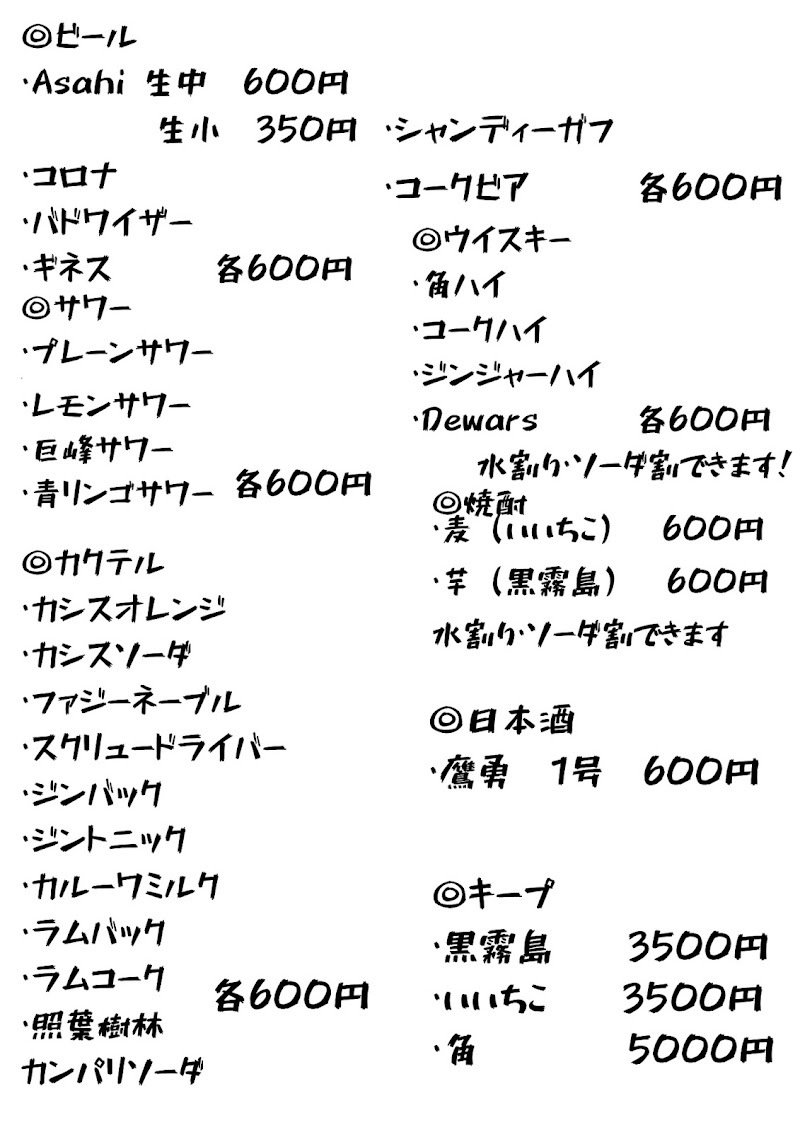 ◎ビール
・Asahi 生中 600円
生小 350円
・コロナ
・バドワイザー
・ギネス 各600円
◎サワー
・プレーンサワー
・レモンサワー
・巨峰サワー
・青リンゴサワー 各600円
◎カクテル
・カシスオレンジ
・カシスソーダ
・ファジーネーブル
・スクリュードライバー
・ジンバック
・ジントニック
・カルーワミルク
・ラムバック
・ラムコーク 各600円
・照葉樹林
カンパリソーダ
・シャンディーガフ
・コークビア 各600円
◎ウイスキー
・角ハイ
・コークハイ
・ジンジャーハイ
・Dewars 各600円
水割り・ソーダ割できます!
◎焼酎
・麦(いいちこ) 600円
・芋(黒霧島) 600円
水割り・ソーダ割できます
◎日本酒
・鷹勇 1号 600円
◎キープ
・黒霧島 3500円
・いいちこ 3500円
・角 5000円